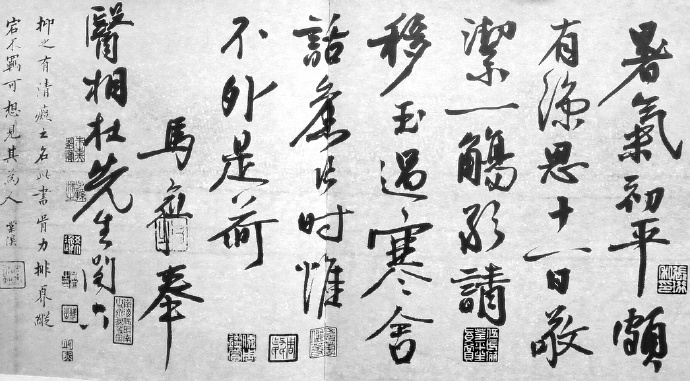 暑氣初平頗
有涼思十一日敬
潔一觴敢請
移玉過寒舍
話舊片時惟
不外是荷
馬愈奉
醫相杜先生閣下
抑之有清癡之名此書骨力排奡縱
宕不羈可想見其為人